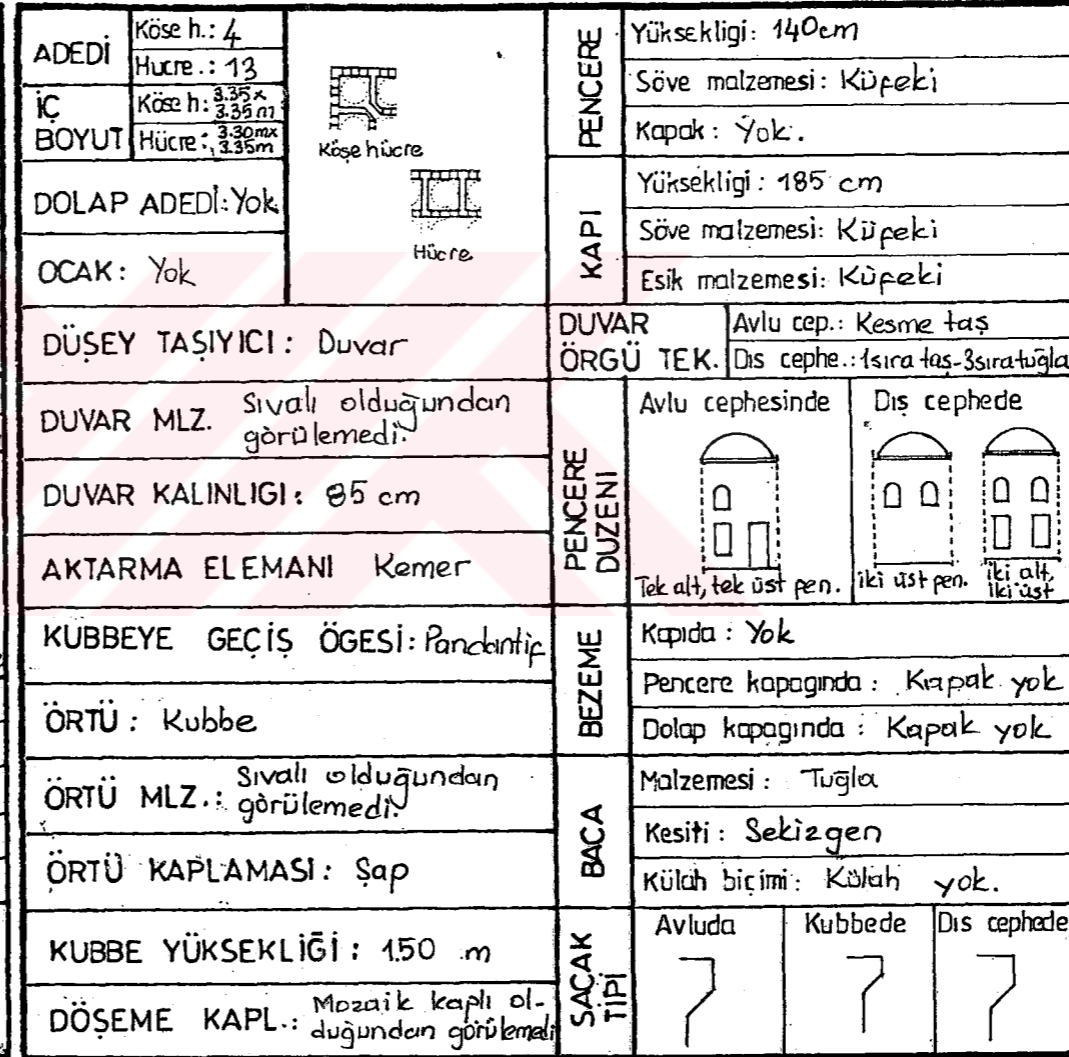 ADEDİ
Köse h.: 4
Hucre.: 13
İÇ BOYUT
Köse h: 3.35x 3.35m
Hücre: 3.30mx 3.35m
DOLAP ADEDİ: Yok
OCAK: Yok
Köşe hücre
Hücre
DÜŞEY TAŞIYICI: Duvar
DUVAR MLZ. Sıvalı olduğundan
görülemedi.
DUVAR KALINLIGI: 85 cm
AKTARMA ELEMANI Kemer
KUBBEYE GEÇİŞ ÖGESİ: Pandantif
ÖRTÜ: Kubbe
ÖRTÜ MLZ.: Sıvalı olduğundan
görülemedi.
ÖRTÜ KAPLAMASI: Şap
KUBBE YÜKSEKLİĞİ: 1.50 m
DÖŞEME KAPL.: Mozaik kaplı ol-
duğundan görülemedi
PENCERE
Yüksekligi: 140cm
Söve malzemesi: Küfeki
Kapak: Yok.
KAPI
Yüksekligi: 185 cm
Söve malzemesi: Küfeki
Esik malzemesi: Küfeki
DUVAR
ÖRGÜ TEK.
Avlu cep.: Kesme taş
Dıs cephe.: 1sıra taş-3sıra tuğla
PENCERE
DUZENI
Avlu cephesinde
Tek alt, tek üst pen.
Dış cephede
iki üst pen.
iki alt,
iki üst
BEZEME
Kapıda: Yok
Pencere kapagında: Kapak yok
Dolap kapagında: Kapak yok
BACA
Malzemesi: Tuğla
Kesiti: Sekizgen
Külah biçimi: Külah yok.
SAÇAK
TİPİ
Avluda
Kubbede
Dıs cephede